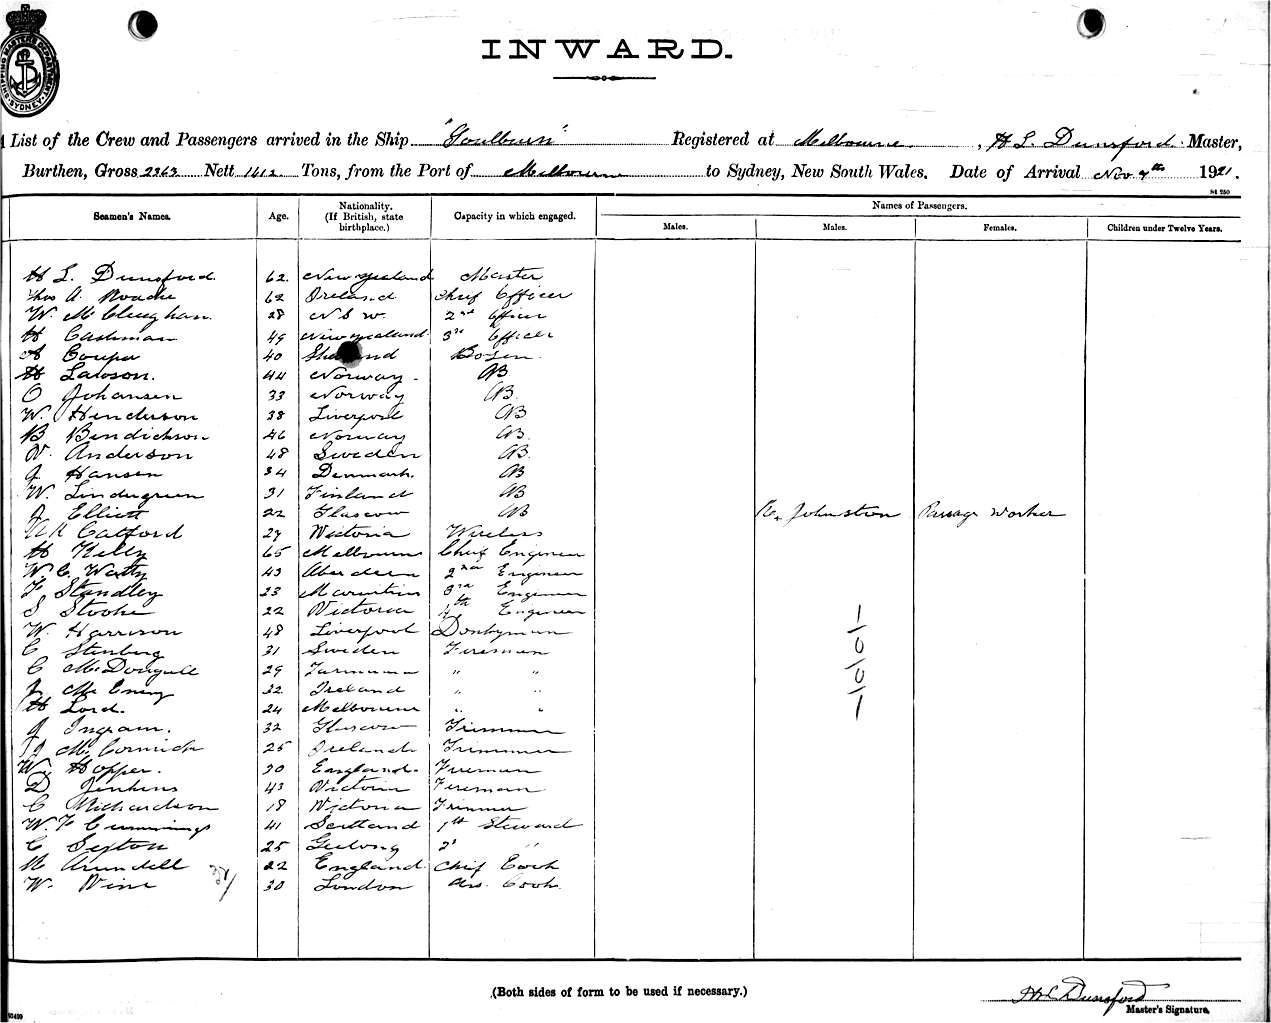 SHIPPING MASTERS DEPARTMENT SYDNEY
INWARD.
List of the Crew and Passengers arrived in the Ship "Goulburn" Registered at Melbourne, H L Dunsford Master,
Burthen, Gross 2363 Nett 1412 Tons, from the Port of Melbourne to Sydney, New South Wales. Date of Arrival Nov. 7th 1921.
St 250
Seamen's Names. Age. Nationality. (If British, state birthplace.) Capacity in which engaged. Names of Passengers.
Males. Males. Females. Children under Twelve Years.
H L. Dunsford. 62. New Zealand Master
Thos A. Roache 62 Ireland Chief Officer
W. McClughan. 28 N S W. 2nd Officer
H Cashman 49 New Zealand. 3rd Officer
A Couper 40 Bosen.
H Lawson. 44 Norway. AB
O Johansen 33 Norway AB.
W. Henderson 38 Liverpool AB
B Bendickson 46 Norway AB.
V. Anderson 48 Sweden AB.
J. Hansen 34 Denmark. AB
W. Lindegreen 31 Finland AB
J Elliott 22 Glascow AB Johnston Passage Worker
Catford 27 Victoria Wireless
H Kelly 65 Melbourne Chief Engineer
W C. Watty 43 Aberdeen 2nd Engineer
F Standley 23 Mauritius 3rd Engineer
S Stooke 22 Victoria 4th Engineer
W. Harrison 48 Liverpool Donkyman
C Stenberg 31 Sweden Fireman
C McDougall 29 Tasmania " "
J McEniry 32 Ireland " "
H Lord. 24 Melbourne " "
J Ingram. 32 Glascow Trimmer
J McCormick 25 Ireland Trimmer
Wm Hopper. 30 England. Fireman
D Jenkins 43 Victoria Fireman
C Richardson 18 Victoria Trimmer
W. F Cummings 41 Scotland 1st Steward
C Sefton 25 Geelong 2d "
R Arundell 22 England. Chief Cook
W. Vine 30 London Ass. Cook.
-1010/-
(Both sides of form to be used if necessary.)
H L Dunsford
Master's Signature.